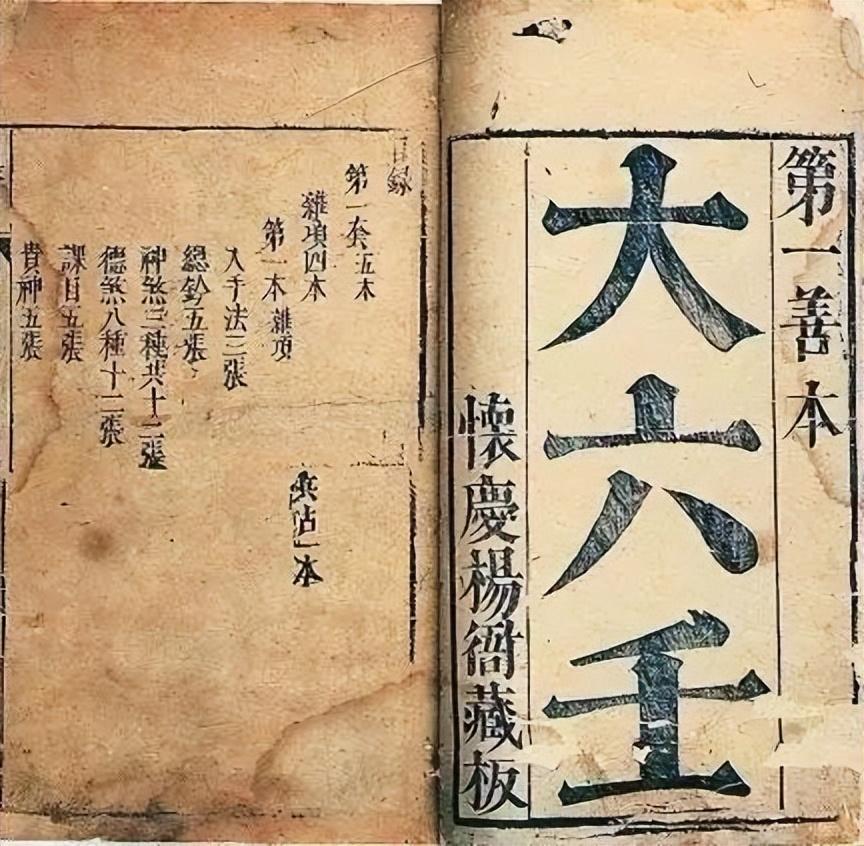 第一善本
大六壬
懷慶楊衙藏板
目録
第一套五本
雜項四本
兵占一本
第一本雜項
入手法三張
總鈐五張
神煞三種共十二張
德煞八種十二張
課目五張
貴神五張